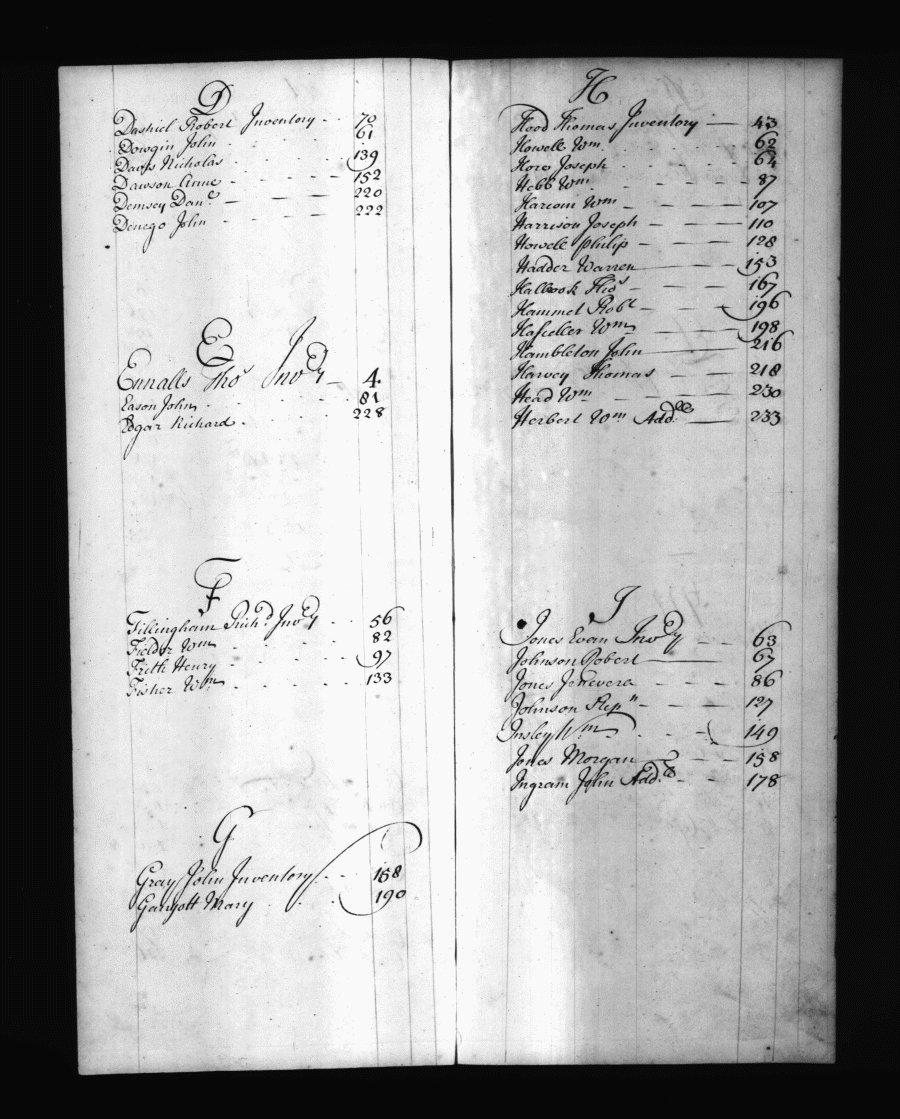 D
Dashiel Robert Inventory 70
Dowgin John 61
Davis Nicholas 139
Dawson Anne 152
Demsey Danˡ 220
Denego John 222
E
Ennalls Thoˢ Invʳʸ 4
Eason John 81
Edgar Richard 228
F
Fillingham Richᵈ Invʳʸ 56
Fielder Wm 82
Frith Henry 97
Fisher Wm 133
G
Gray John Inventory 158
Garyott Mary 190
H
Hood Thomas Inventory 43
Howell Wm 62
Hore Joseph 64
Hebb Wm 87
Harcom Wm 107
Harrison Joseph 110
Howell Philip 128
Hadder Warren 153
Halbook Thoˢ 167
Hammet Robᵗ 196
Wm 198
Hambleton John 216
Harvey Thomas 218
Head Wm 230
Herbert Wm Addˡ 233
I
Jones Evan Invʳʸ 63
Johnson Robert 67
Jones Jenevera 86
Johnson Stepⁿ 127
Insley Wm 149
Jones Morgan 158
Ingram John Addˡ 178